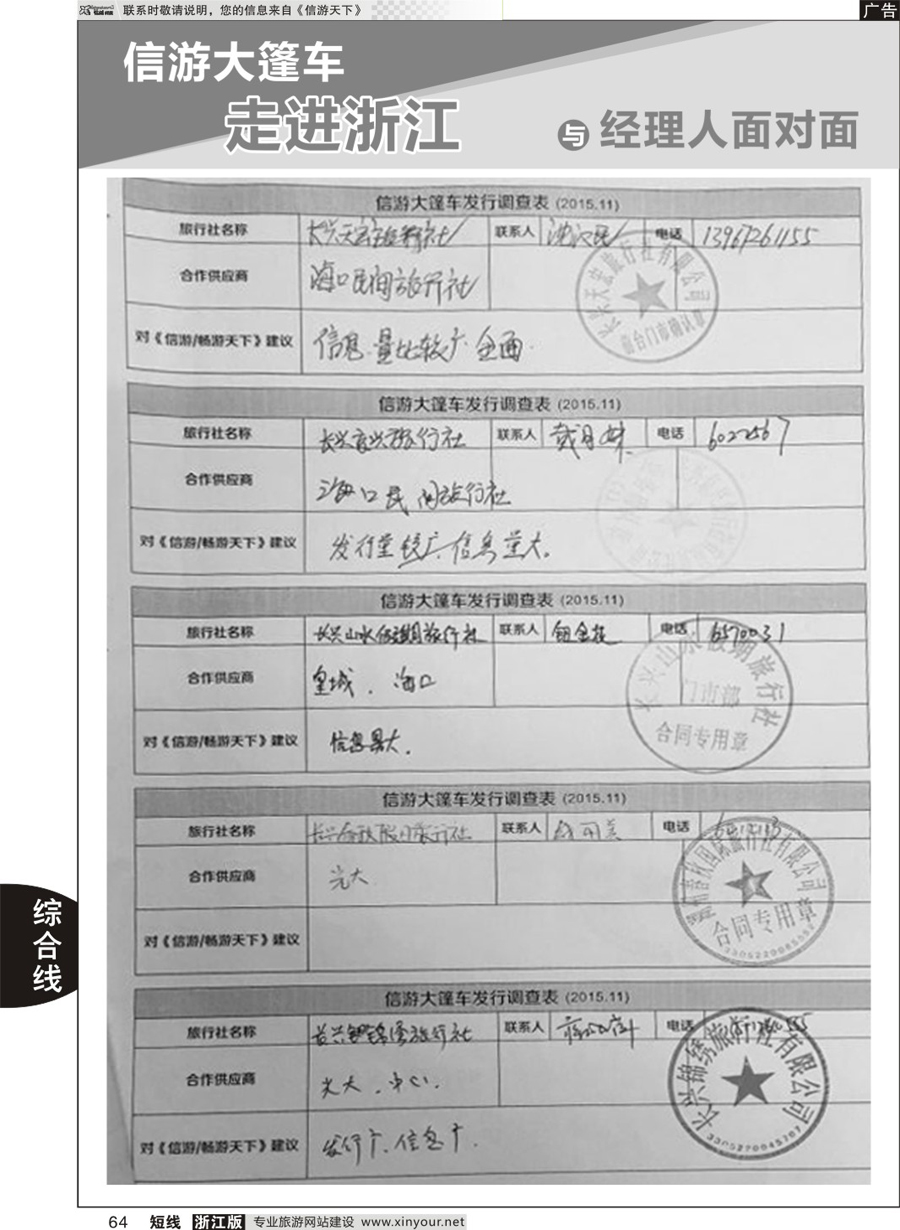 联系时敬请说明，您的信息来自《信游天下》
广告
信游大篷车
走进浙江
与 经理人面对面
信游大篷车发行调查表 (2015.11)
旅行社名称 联系人 电话 13967261155
合作供应商 海口民间旅行社
对《信游/畅游天下》建议 信息量比较广 全面
信游大篷车发行调查表 (2015.11)
旅行社名称 旅行社 联系人 电话 6022567
合作供应商 海口民间旅行社
对《信游/畅游天下》建议 发行量较广 信息量大。
信游大篷车发行调查表 (2015.11)
旅行社名称 长兴山水假期旅行社 联系人 电话 6570031
合作供应商 皇城、海口
对《信游/畅游天下》建议 信息量大。
长兴山水假期旅行社
门市部
合同专用章
信游大篷车发行调查表 (2015.11)
旅行社名称 联系人 电话
合作供应商 光大
对《信游/畅游天下》建议
合同专用章
信游大篷车发行调查表 (2015.11)
旅行社名称 联系人 电话
合作供应商 光大、中心、
对《信游/畅游天下》建议 发行广、信息广.
长兴锦绣旅行社有限公司
综合线
64 短线 浙江版 专业旅游网站建设 www.xinyour.net